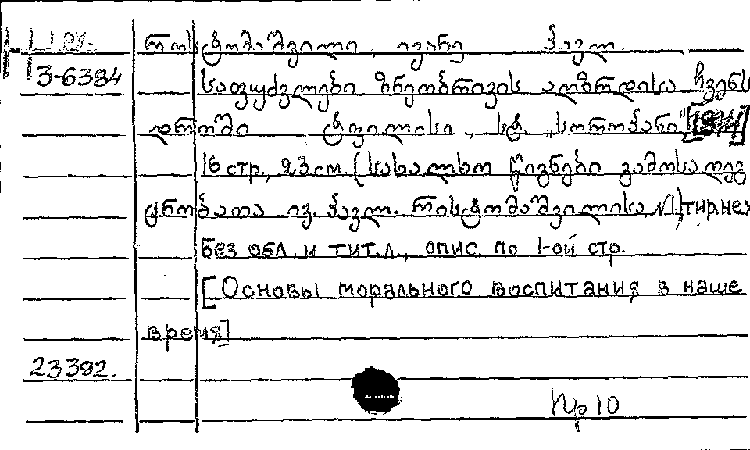 როსტომაშვილი, ივანე პავლ.
3-6384 საფუძვლები ზნეობრივის აღზრდისა ჩვენს
დროში ტფილისი, სტ. „სოროპანი"
16 стр., 23 см. (სახალხო წიგნები გამოსაღეგ
ივ. პავლ. როსტომაშვილისა №1) тир. неу
без обл. и тит. л., опис. по 1-ой стр.
[Основы морального воспитания в наше
время]
23392.
Пр 10